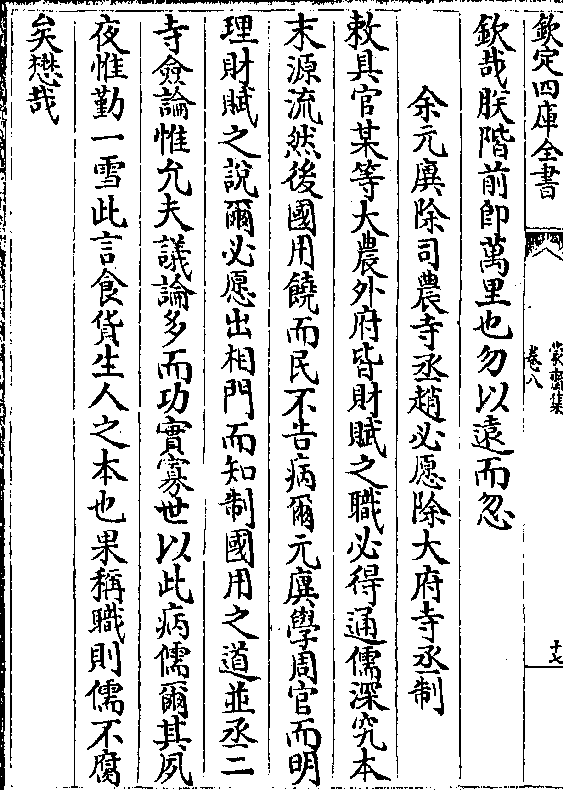 欽定四庫全書
蒙齋集
卷八
十七
欽哉朕階前即萬里也勿以遠而忽
余元廙除司農寺丞趙必愿除大府寺丞制
敕具官某等大農外府皆財賦之職必得通儒深究本
末源流然後國用饒而民不告病爾元廙學周官而明
理財賦之說爾必愿出相門而知制國用之道並丞二
寺僉論惟允夫議論多而功實寡世以此病儒爾其夙
夜惟勤一雪此言食貨生人之本也果稱職則儒不腐
矣懋哉